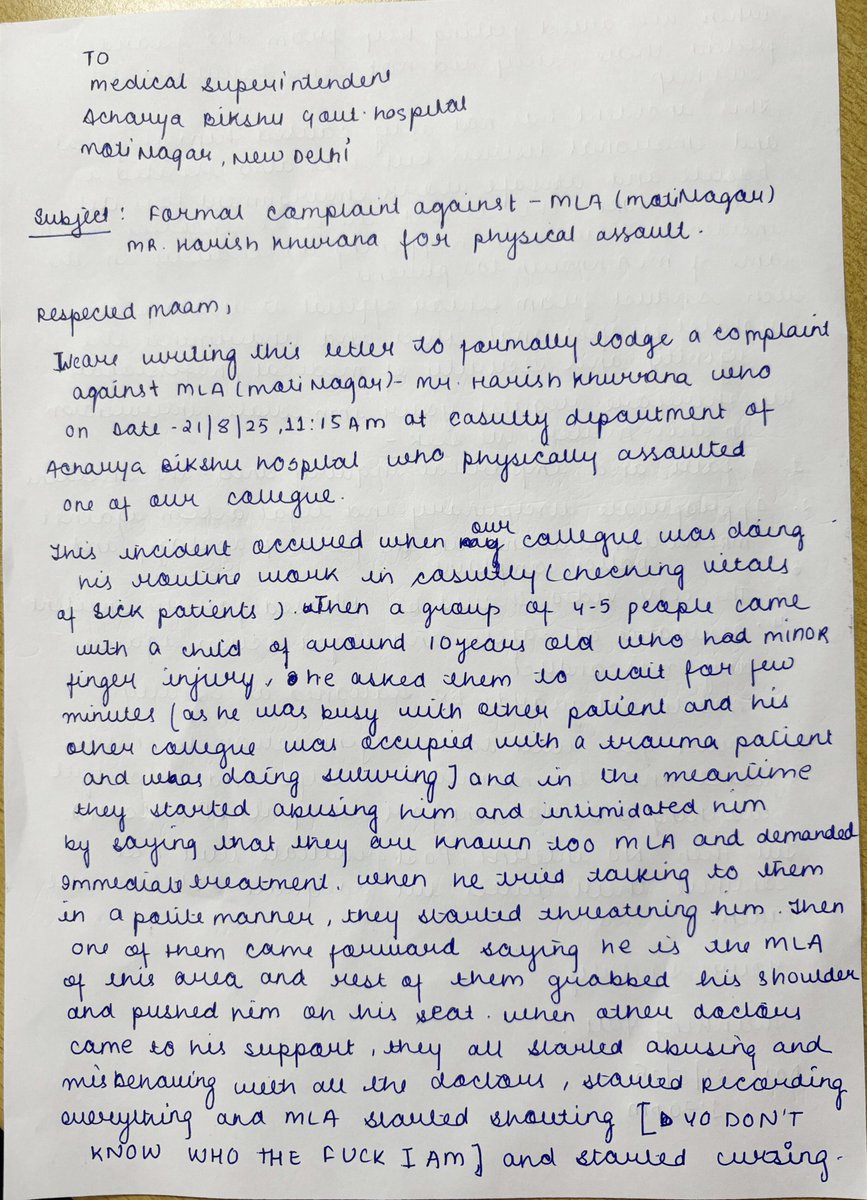 TO
medical superintendent
Acharya Bikshu Govt. hospital
Moti Nagar, New Delhi
Subject : Formal complaint against - MLA (Moti Nagar)
MR. Harish Khurana for physical assault.
Respected Maam,
We are writing this letter to formally lodge a complaint
against MLA (Moti Nagar)- Mr. Harish Khurrana who
on Date -21/8/25, 11:15 AM at casulty department of
Acharya Bikshu hospital who physically assaulted
one of our collegue.
This incident occured when our collegue was doing
his routine work in casulty (checking vitals
of sick patients). Then a group of 4-5 people came
with a child of around 10 years old who had minor
finger injury, he asked them to wait for few
minutes (as he was busy with other patient and his
other collegue was occupied with a trauma patient
and was doing suturing] and in the meantime
they started abusing him and intimidated him
by saying that they are known too MLA and demanded
immediate treatment. when he tried talking to them
in a polite manner, they started threatening him. Then
one of them came forward saying he is the MLA
of this area and rest of them grabbed his shoulder
and pushed him on his seat. when other doctors
came to his support, they all started abusing and
misbehaving with all the doctors, started recording
everything and MLA started shouting [YO DON'T
KNOW WHO THE FUCK I AM] and started cursing.